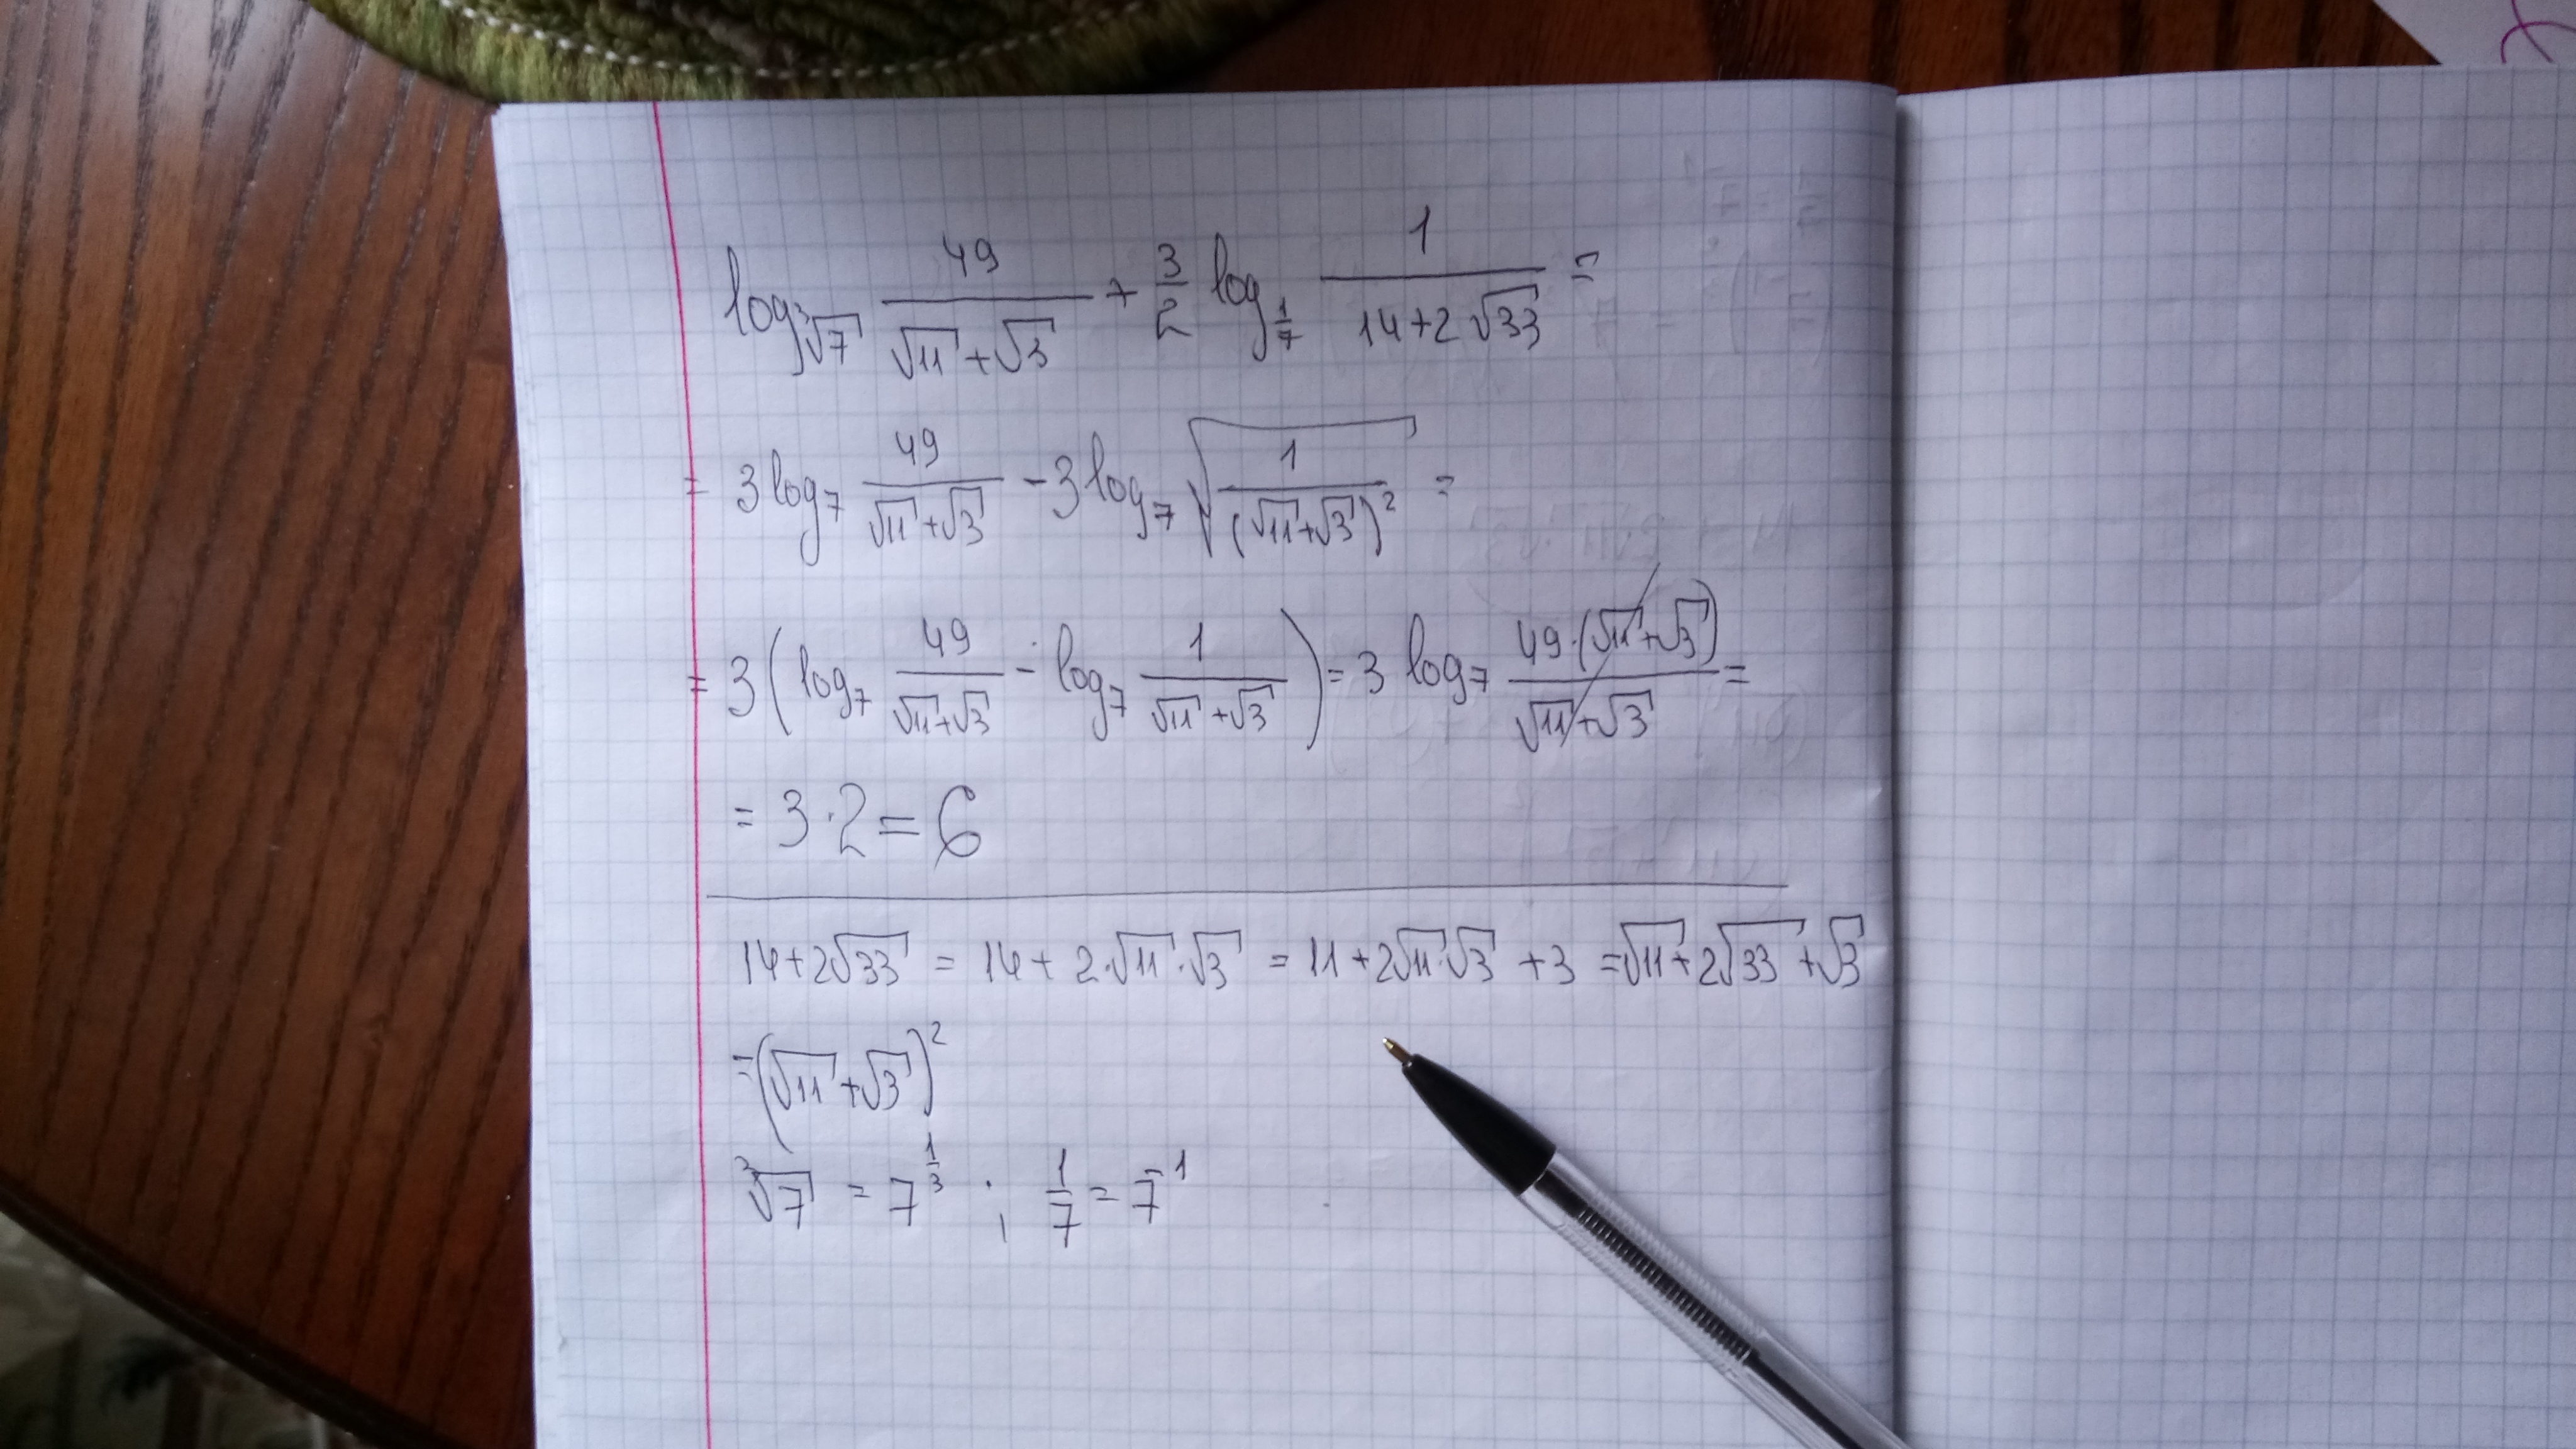 log_∛7 49/(√11+√3) + 3/2 log_1/7 1/(14+2√33) =
= 3log_7 49/(√11+√3) - 3log_7 √(1/(√11+√3)²) =
= 3(log_7 49/(√11+√3) - log_7 1/(√11+√3)) = 3 log_7 49·(√11+√3)/(√11+√3) =
= 3·2 = 6
14+2√33 = 14+2·√11·√3 = 11+2√11·√3+3 = √11+2√33+√3
= (√11+√3)²
∛7 = 7^1/3 ; 1/7 = 7^-1